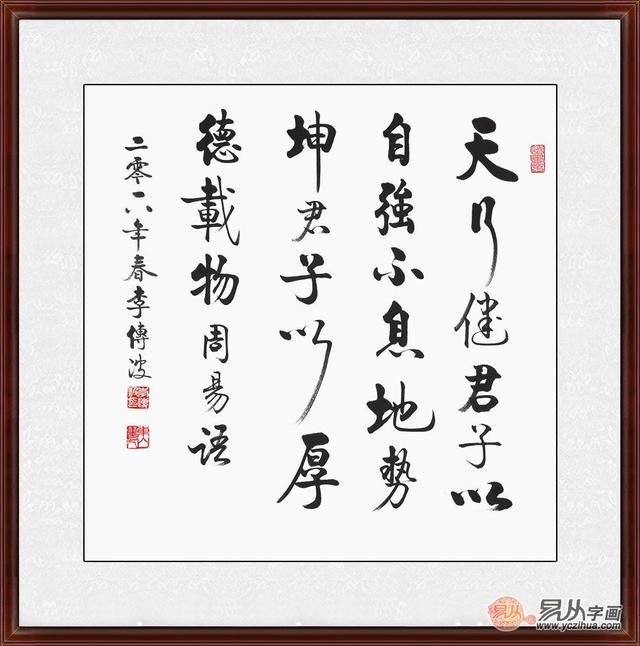 天行健君子以
自強不息地勢
坤君子以厚
德載物周易語
二零一八年春李傳波
易从字画
www.yczihua.com